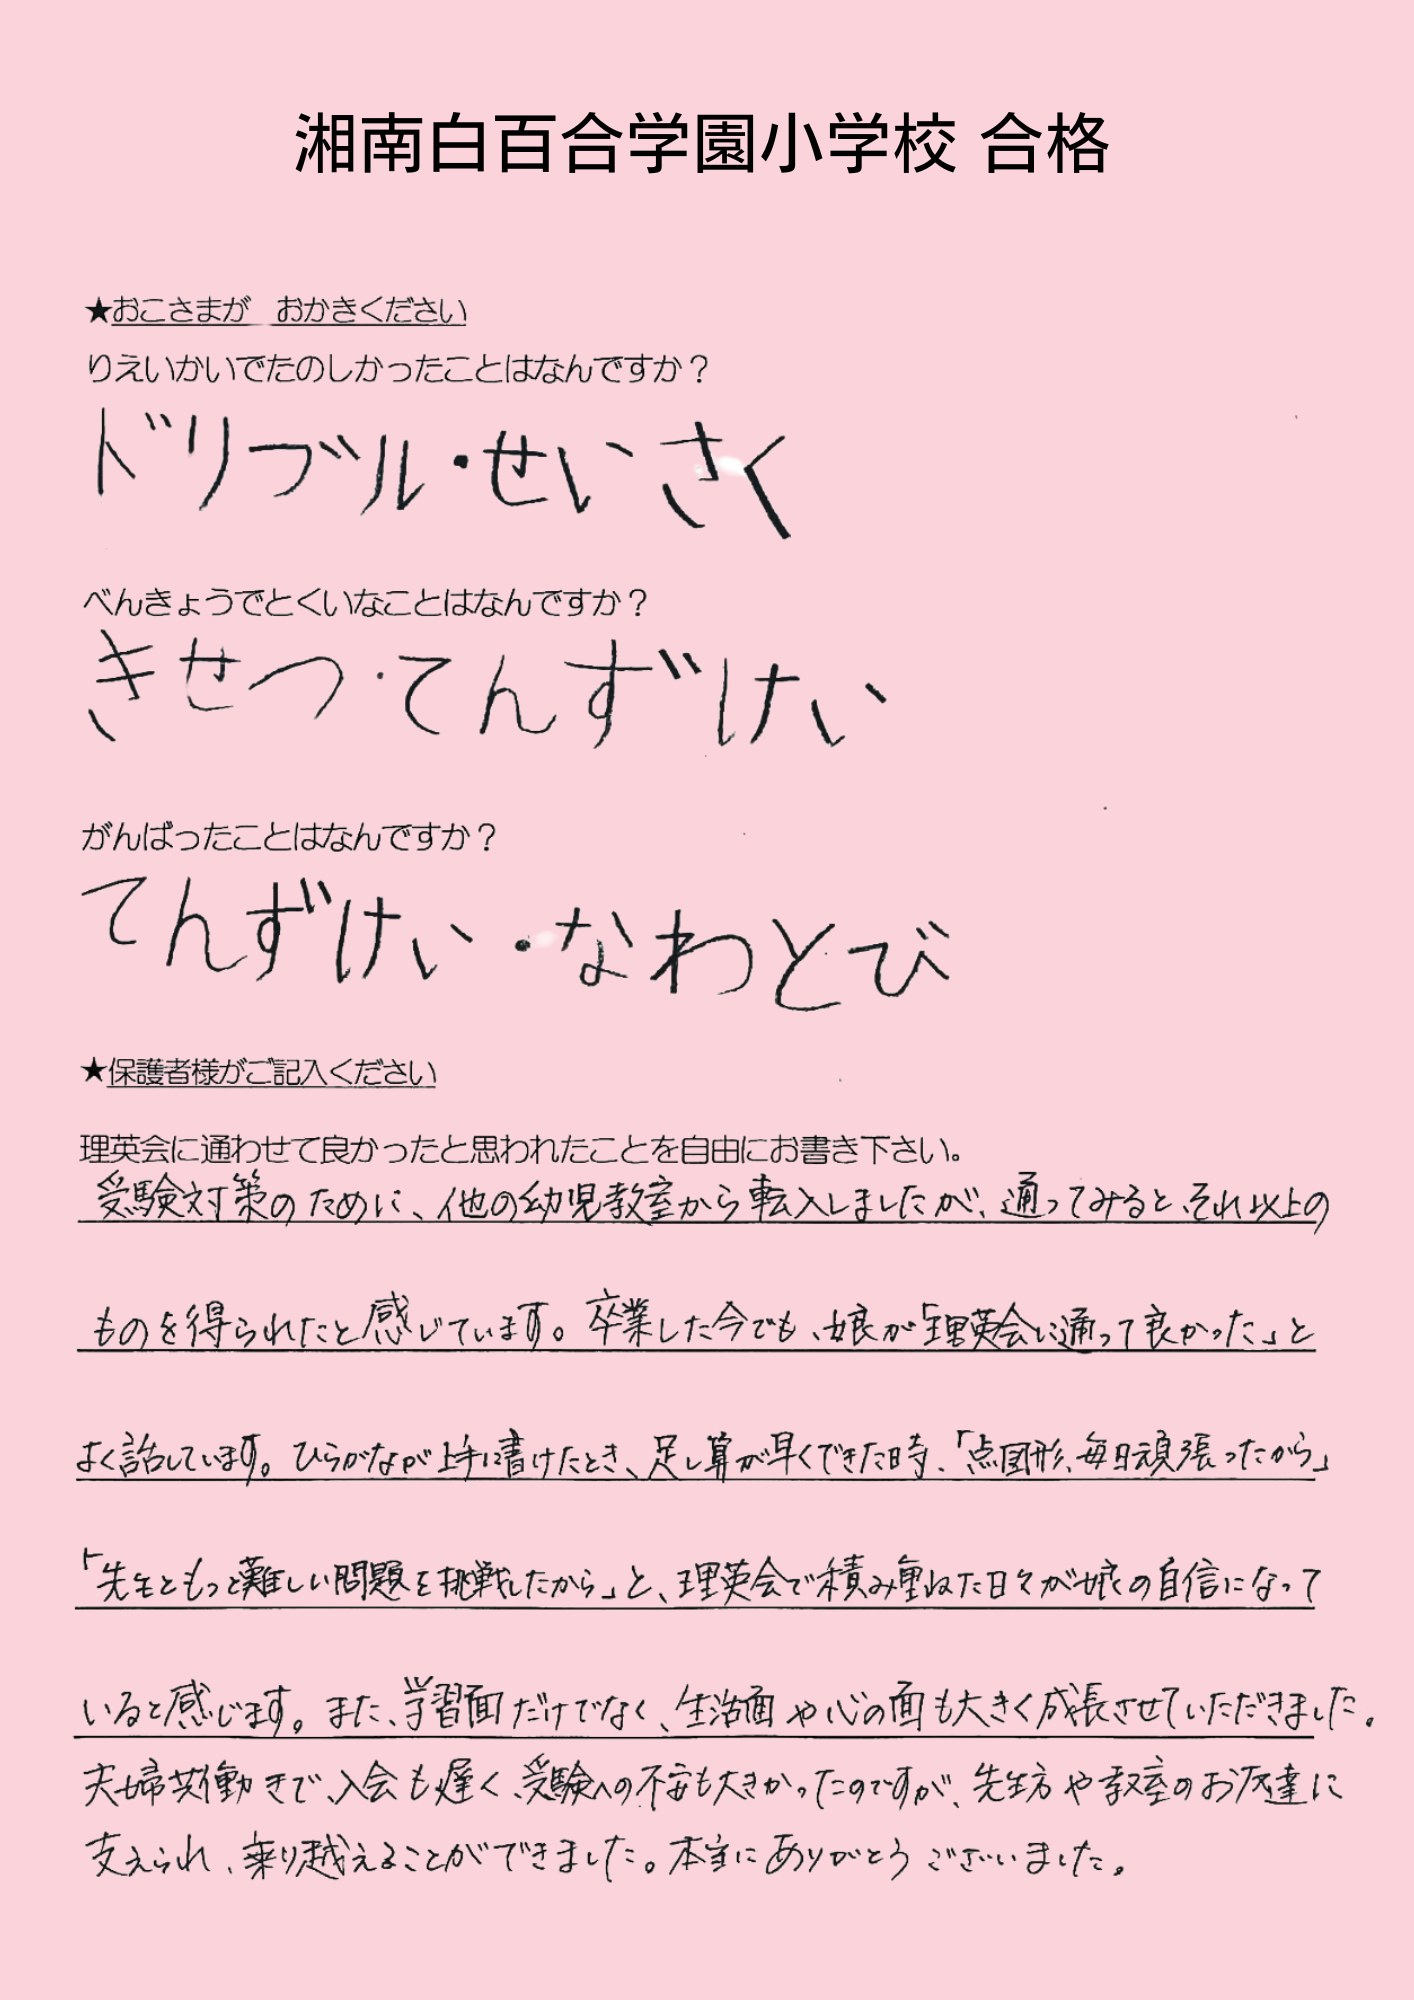 湘南白百合学園小学校 合格
★おこさまが　おかきください
りえいかいでたのしかったことはなんですか？
ドリブル・せいさく
べんきょうでとくいなことはなんですか？
きせつ・てんずけい
がんばったことはなんですか？
てんずけい・なわとび
★保護者様がご記入ください
理英会に通わせて良かったと思われたことを自由にお書き下さい。
受験対策のために、他の幼児教室から転入しましたが、通ってみると、それ以上の
ものを得られたと感じています。卒業した今でも、娘が「理英会に通って良かった」と
よく話しています。ひらがなが上手に書けたとき、足し算が早くできた時、「点図形、毎日頑張ったから」
「先生ともっと難しい問題を挑戦したから」と、理英会で積み重ねた日々が娘の自信になって
いると感じます。また、学習面だけでなく、生活面や心の面も大きく成長させていただきました。
夫婦共働きで、入会も遅く、受験への不安も大きかったのですが、先生方や教室のお友達に
支えられ、乗り越えることができました。本当にありがとうございました。